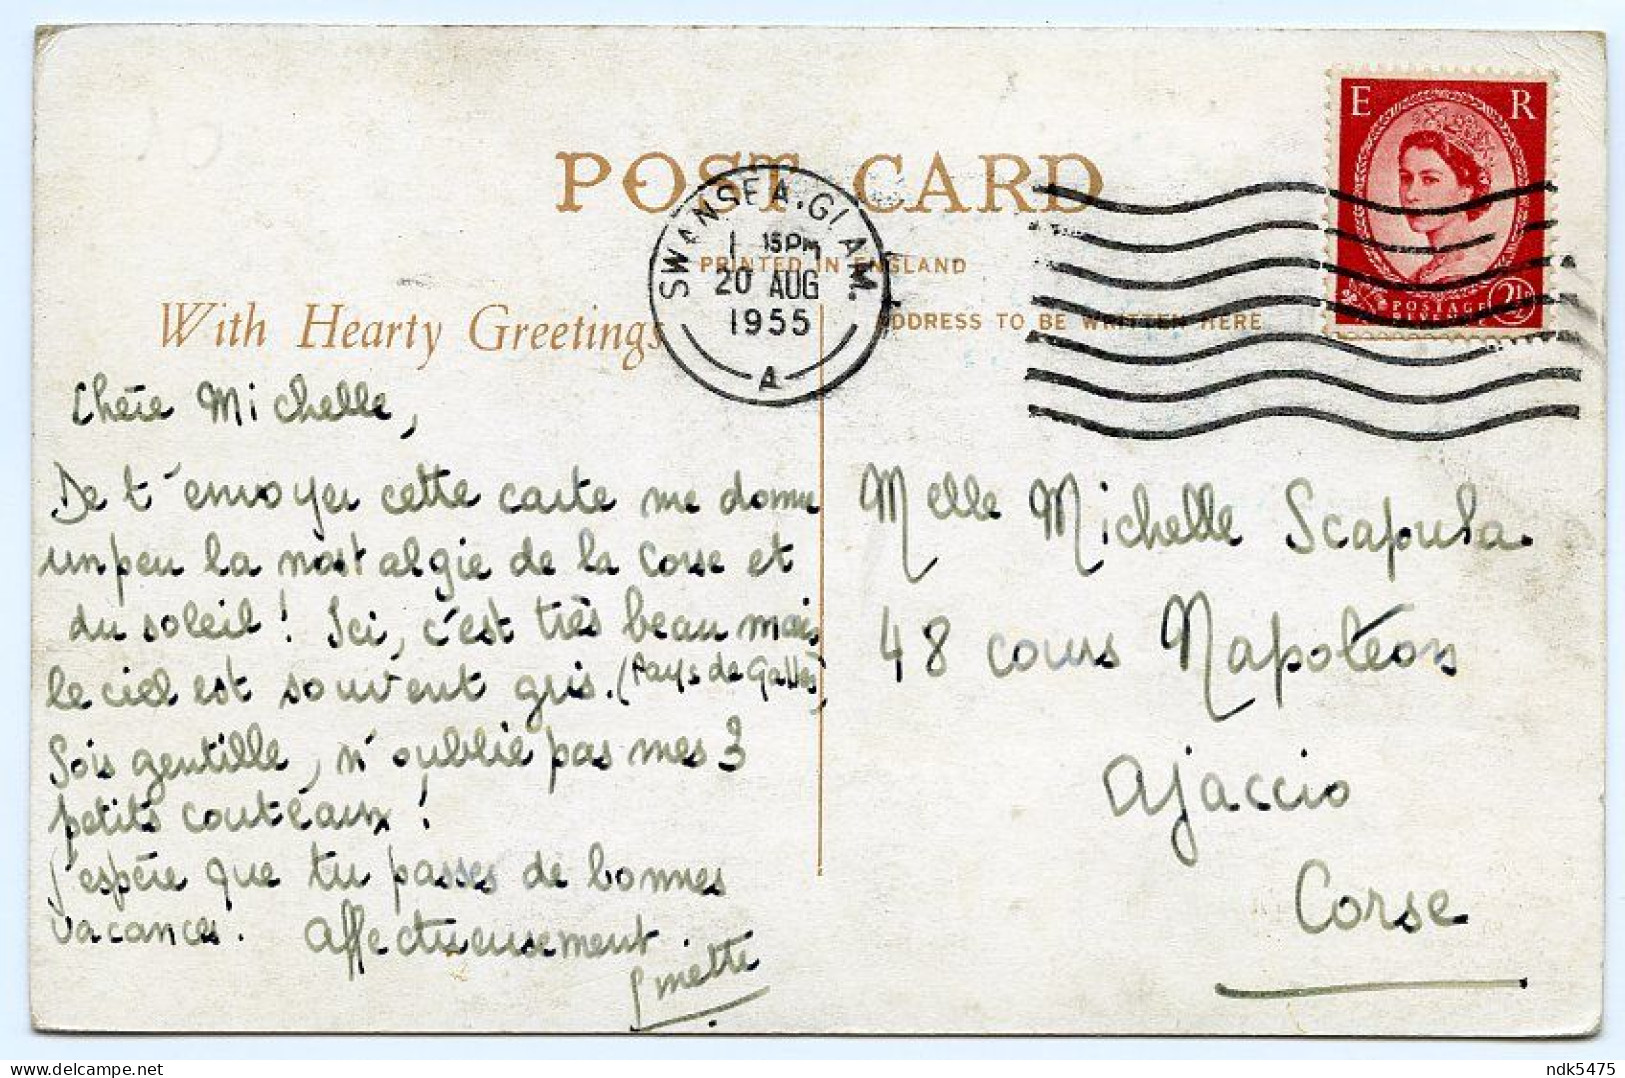 POST CARD
PRINTED IN ENGLAND
With Hearty Greetings
ADDRESS TO BE WRITTEN HERE
SWANSEA.GLAM.
1 15PM
20 AUG
1955
A
E R
POSTAGE
2½
Chère Michelle,
De t'envoyer cette carte me donne
un peu la nostalgie de la Corse et
du soleil! Ici, c'est très beau mais
le ciel est souvent gris. (Pays de Galles)
Sois gentille, n'oublie pas mes 3
petits couteaux!
J'espère que tu passes de bonnes
vacances. Affectueusement
Melle Michelle Scapula.
48 cours Napoléon
Ajaccio
Corse
ndk5475